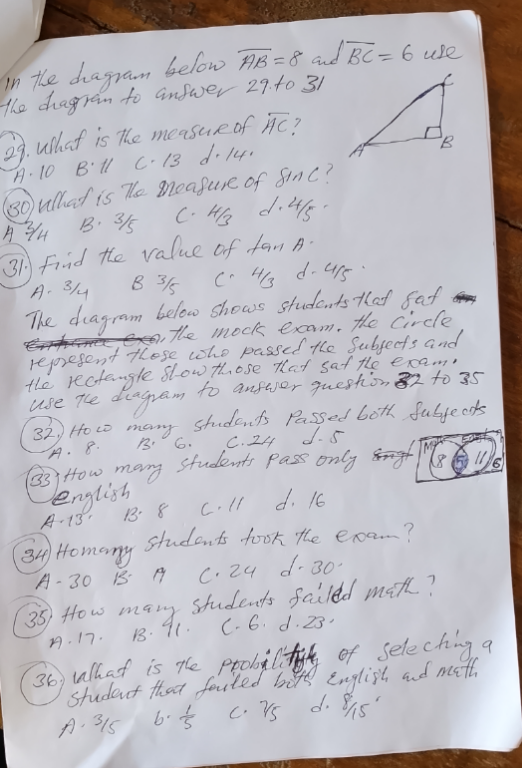 In the diagram below AB = 8 and BC = 6 use
the diagram to answer 29. to 31
C
A
B
29. What is the measure of AC?
A. 10 B. 11 C. 13 d. 14.
30 What is The measure of sin C?
A 3/4 B. 3/5 C. 4/3 d. 4/5.
31. Find the value of tan A.
A. 3/4 B 3/5 C. 4/3 d. 4/5.
The diagram below shows students that sat
the mock exam. the circle
represent those who passed the subjects and
the rectangle show those that sat the exam.
use the diagram to answer question 32 to 35
32. How many students Passed both Subjects
A. 8. B. 6. C. 24 d. 5
8 5 11 6
33 How many students pass only
english
A. 13. B. 8 C. 11 d. 16
34 Homany students took the exam?
A. 30 B. A C. 24 d. 30.
35 How many students failed math?
A. 17. B. 11. C. 6. d. 23.
36. What is the probility of selecting a
student that failed both English and math
A. 3/5 b. 1/5 C. d. 8/15